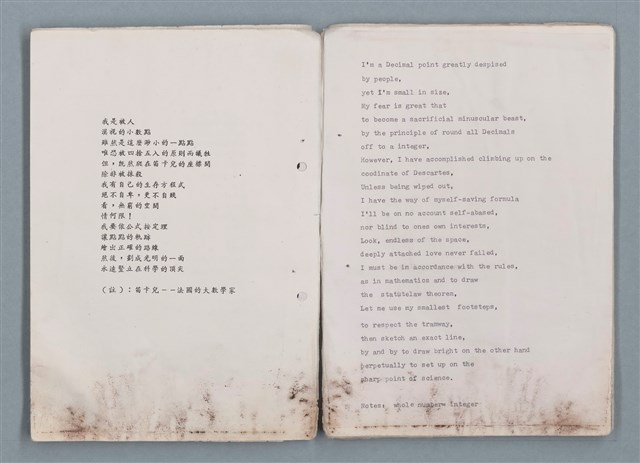 我是被人
蔑視的小數點
雖然是這麼渺小的一點點
唯恐被四捨五入的原則而犧牲
但，既然爬在笛卡兒的座標間
除非被抹殺
我有自己的生存方程式
絕不自卑，更不自瞞
看，無窮的空間
情何限！
我要依公式按定理
讓點點的軌跡
繪出正確的路線
然後，劃成光明的一面
永遠豎立在科學的頂尖
（註）：笛卡兒--法國的大數學家
I'm a Decimal point greatly despised
by people,
yet I'm small in size,
My fear is great that
to become a sacrificial minuscular beast,
by the principle of round all Decimals
off to a integer,
However, I have accomplished climbing up on the
coodinate of Descartes,
Unless being wiped out,
I have the way of myself-saving formula
I'll be on no account self-abased,
nor blind to ones own interests,
Look, endless of the space,
deeply attached love never failed,
I must be in accordance with the rules,
as in mathematics and to draw
the statutelaw theorem,
Let me use my smallest footsteps,
to respect the tramway,
then sketch an exact line,
by and by to draw bright on the other hand
perpetually to set up on the
sharppoint of science.
Notes: whole number= integer